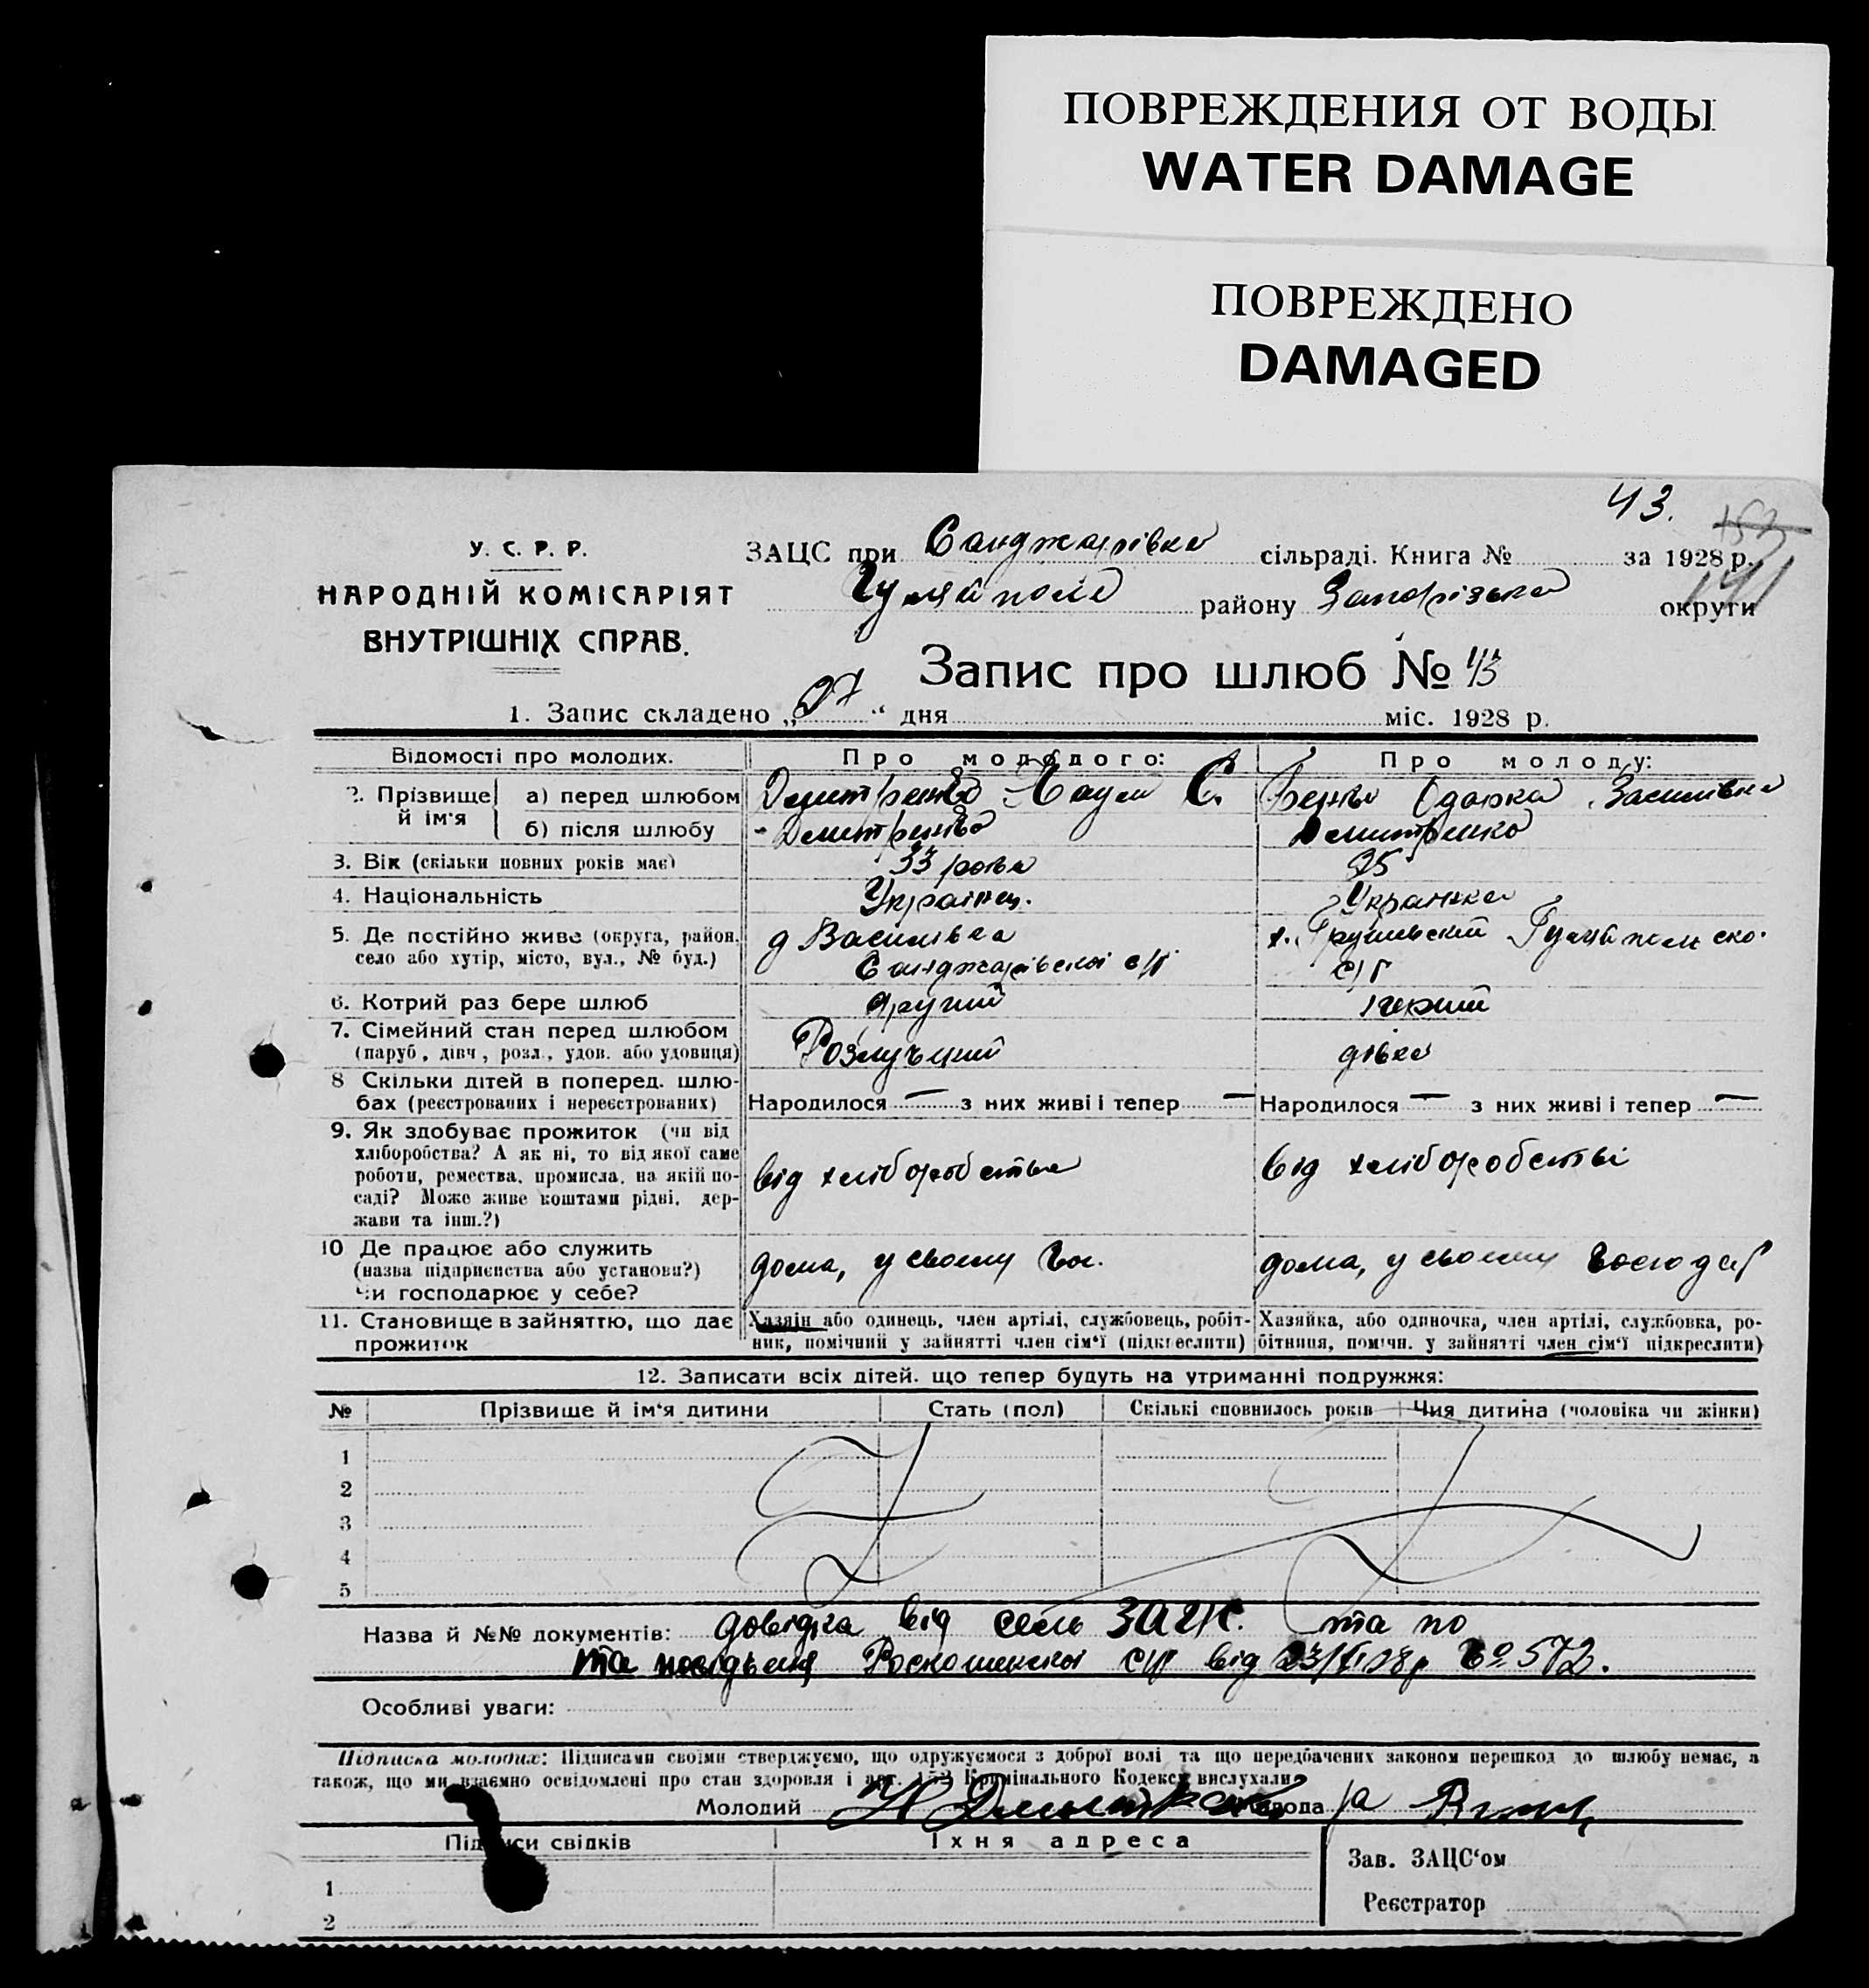 ПОВРЕЖДЕНИЯ ОТ ВОДЫ
WATER DAMAGE
ПОВРЕЖДЕНО
DAMAGED
43.
153
141
У. С. Р. Р.
НАРОДНІЙ КОМІСАРІЯТ
ВНУТРІШНІХ СПРАВ.
ЗАЦС при Санджарівка сільраді. Книга № за 1928 р.
Гуляйполе району Запорізька округи
Запис про шлюб № 43
1. Запис складено „27“ дня міс. 1928 р.
Відомості про молодих. Про молодого: Про молоду:
2. Прізвище й ім'я а) перед шлюбом Дмитренко С. Одарка Василівна
б) після шлюбу Дмитренко Дмитренко
3. Вік (скільки повних років має) 33 роки 25
4. Національність Українец. Украінка
5. Де постійно живе (округа, район, село або хутір, місто, вул., № буд.) д Василівка Санджарівскоі с/г х. Гуляйпольско. с/г
6. Котрий раз бере шлюб другий перший
7. Сімейний стан перед шлюбом (паруб., дівч., розл., удов. або удовиця) Розлучений дівка
8 Скільки дітей в поперед. шлюбах (реєстрованих і нереєстрованих) Народилося — з них живі і тепер — Народилося — з них живі і тепер —
9. Як здобуває прожиток (чи від хліборобства? А як ні, то від якої саме роботи, ремества, промисла, на якій посаді? Може живе коштами рідні, держави та інш.?) від хліборобства від хліборобства
10 Де працює або служить (назва підприєнства або установи?) Чи господарює у себе? дома, у своему дома, у своему
11. Становище в зайняттю, що дає прожиток Хазяін або одинець, член артілі, службовець, робітник, помічний у зайнятті член сім'ї (підкреслити) Хазяйка, або одиночка, член артілі, службовка, робітниця, помічн. у зайнятті член сім'ї підкреслити)
12. Записати всіх дітей. що тепер будуть на утриманні подружжя:
№ Прізвище й ім'я дитини Стать (пол) Скількі сповнилось років Чия дитина (чоловіка чи жінки)
1
2
3
4
5
Назва й №№ документів: довідка від ЗАГС. та по
та Роскошинскоі с/г від 23/ 28р № 572.
Особливі уваги:
Підписка молодих: Підписами своїми стверджуємо, що одружуємося з доброї волі та що передбачених законом перешкод до шлюбу немає, а
також, що ми взаємно освідомлені про стан здоровля і арт. 152 Кримінального Кодексу вислухали
Молодий Молода
Підписи свідків Їхня адреса
Зав. ЗАЦС'ом
1
Реєстратор
2